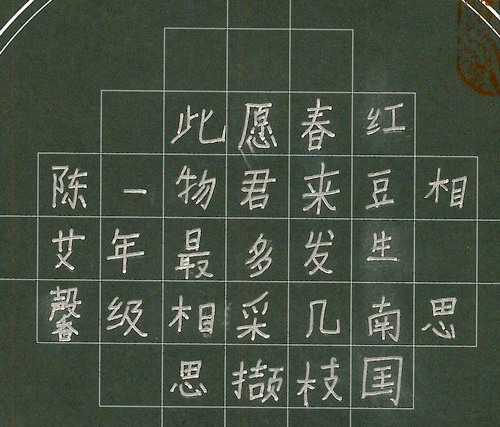 相思
红豆生南国
春来发几枝
愿君多采撷
此物最相思
一年级
陈艾馨